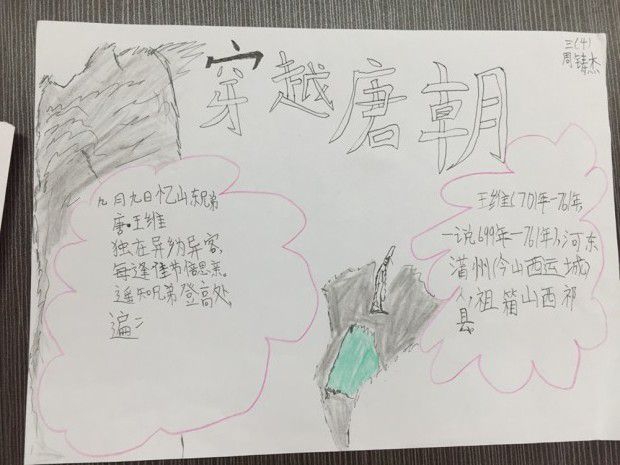 穿越唐朝
三(4)
周铸杰
九月九日忆山东兄弟
唐·王维
独在异乡为异客,
每逢佳节倍思亲。
遥知兄弟登高处,
遍二
王维(701年一761年
一说699年一761年)、河东
蒲州(今山西运城)
人祖箱山西祁
县